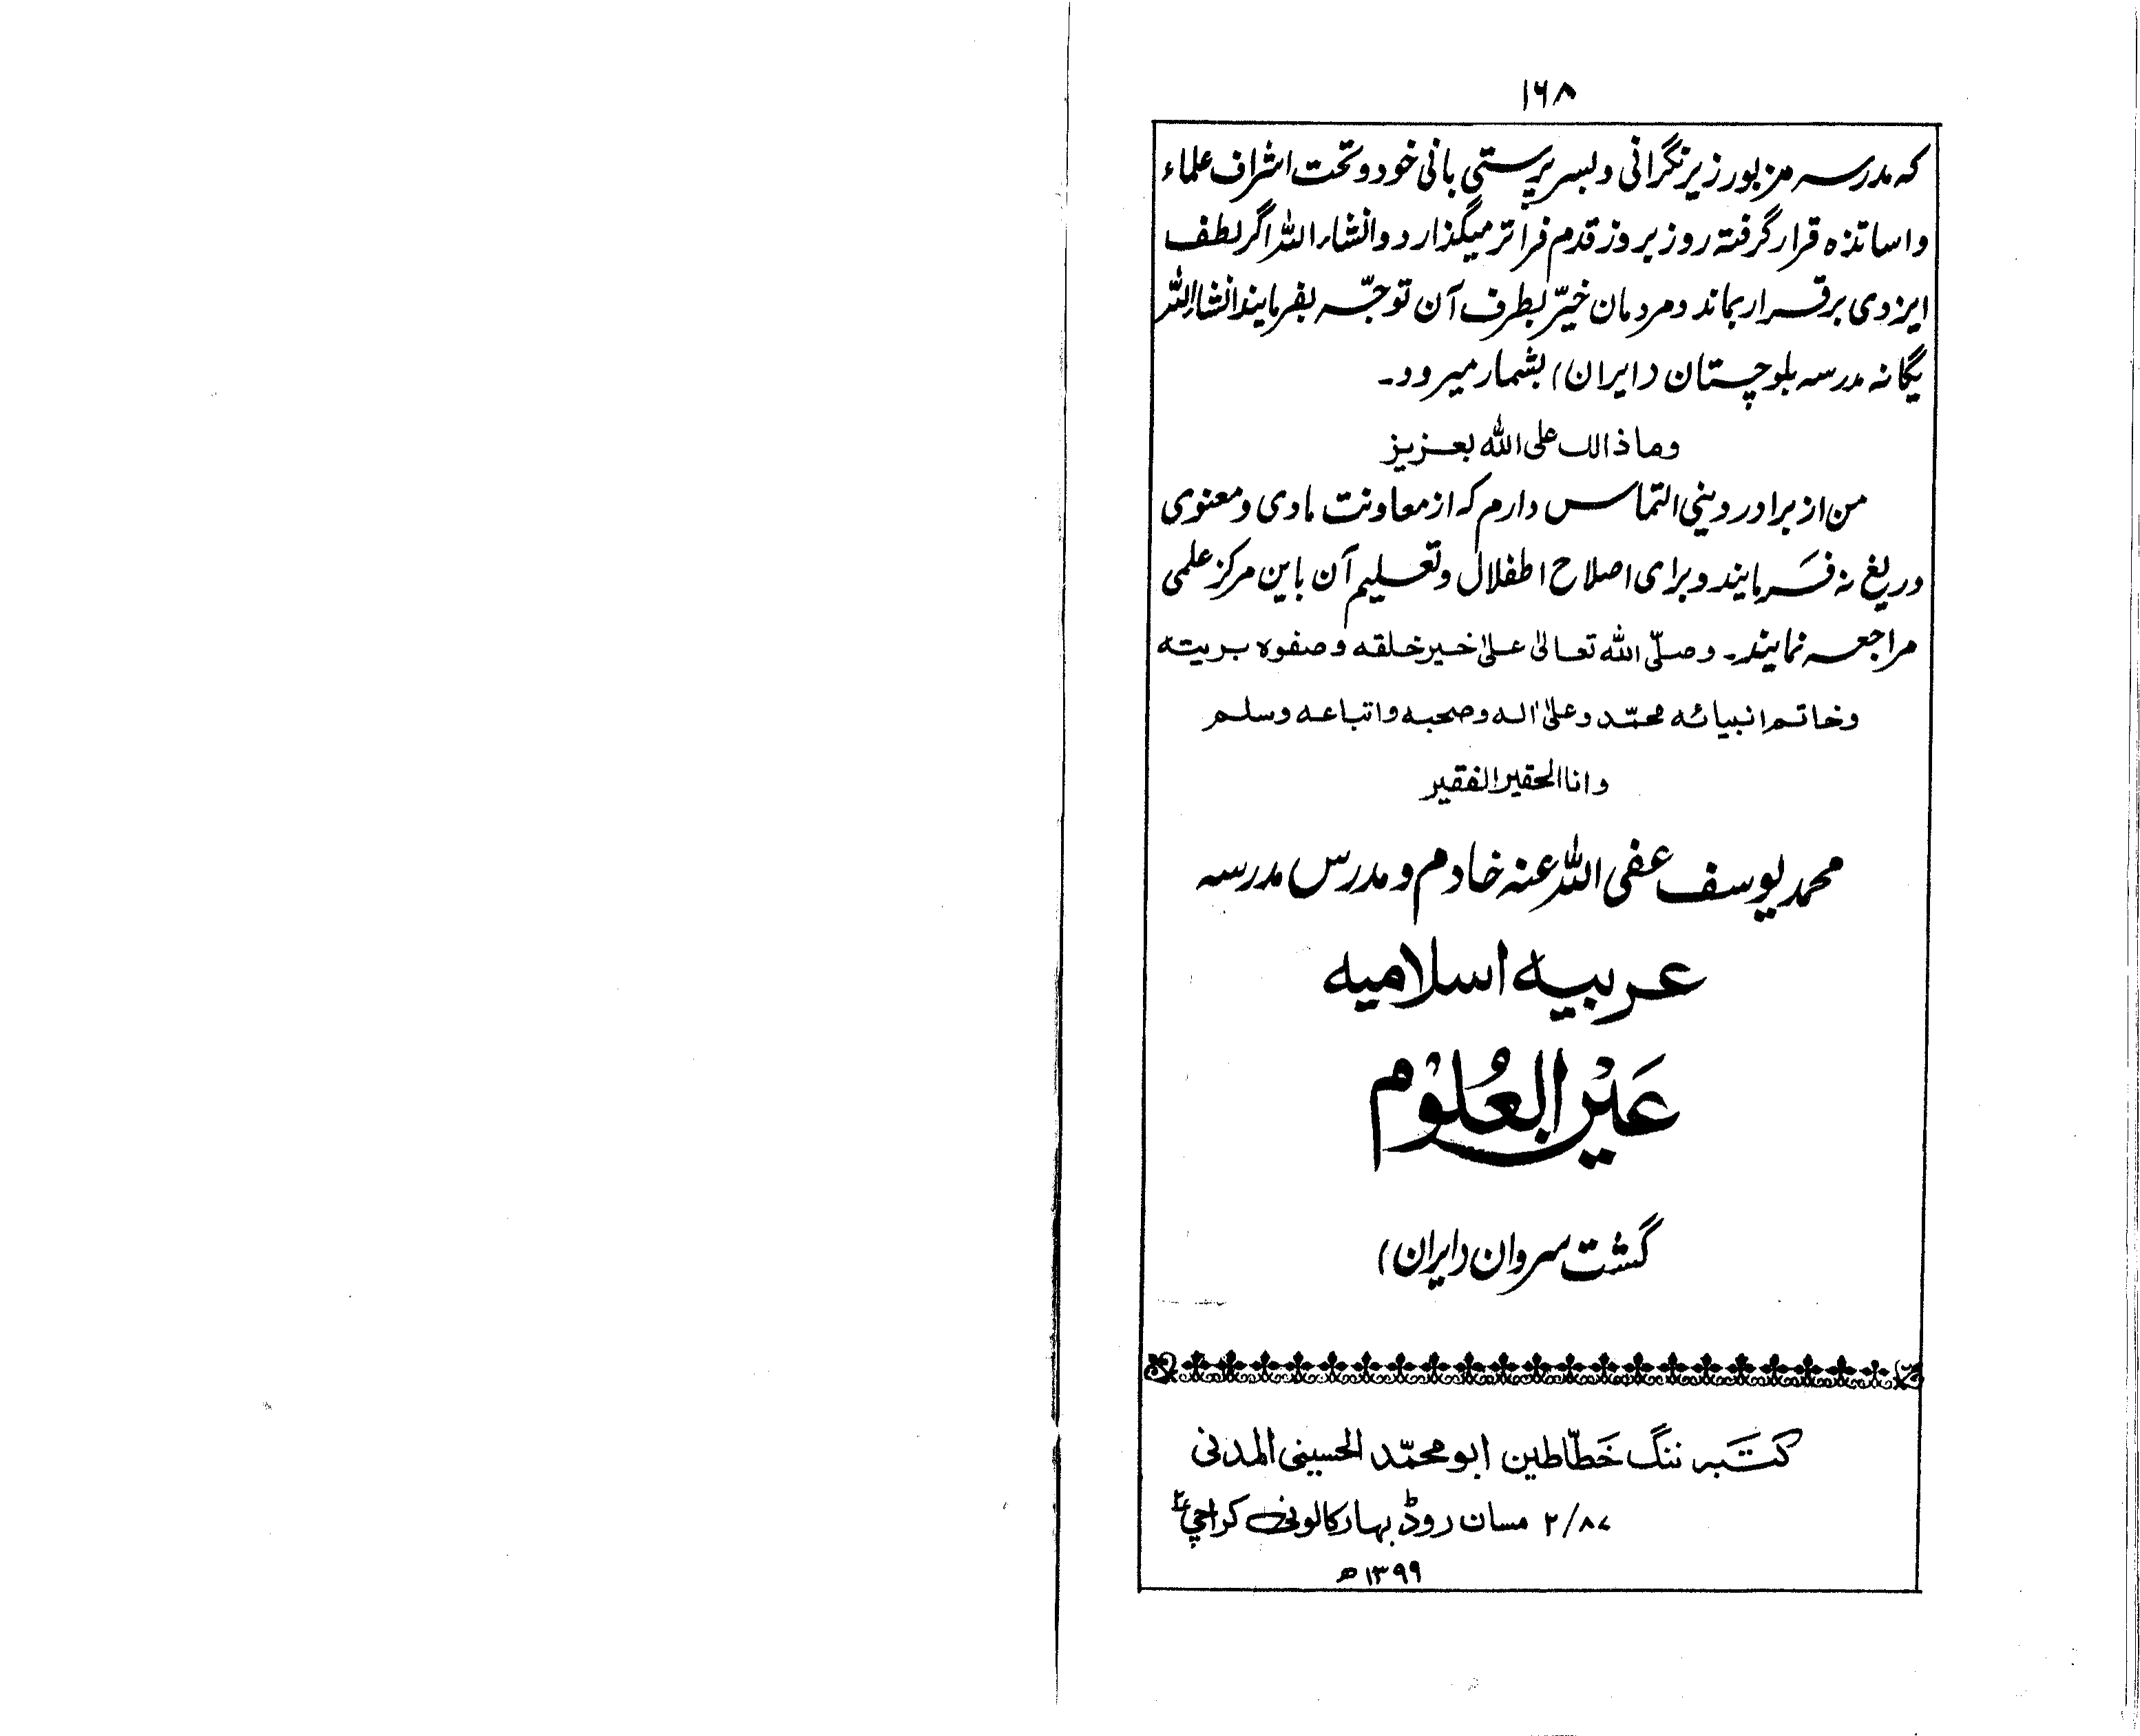 ۱۶۸
که مدرسه مزبور زیر نگرانی و بسر پرستی بانی خود و تحت اشراف علماء
و اساتذه قرار گرفته روز بروز قدم فراتر میگذارد و انشاء الله اگر لطف
ایزدی برقرار بماند و مردمان خیّر بطرف آن توجّه بفرمایند انشاء الله
یگانه مدرسه بلوچستان (ایران) بشمار میرود۔
وماذالك علی الله بعزیز
من از برادر دینی التماس دارم که از معاونت مادی و معنوی
دریغ نه فَرمایند و برای اصلاح اطفلال و تعلیم آن باین مرکز علمی
مراجعه نمایند۔ وصلّی الله تعالیٰ علیٰ خیر خلقه وصفوه بریته
وخاتم انبیائه محمّد وعلیٰ اله وصحبه واتباعه وسلم
وانا الحقیر الفقیر
محمد یوسف عفی الله عنه خادم و مدرس مدرسه
عربیه اسلامیه
عَیْن العُلُوْم
گشت سروان (ایران)
کتَبه ننگ خَطّاطین ابو محمّد الحسینی المدنی
۲/۸۷ مسان روڈ بهار کالونی کراچی ۲
۱۳۹۹ ھ